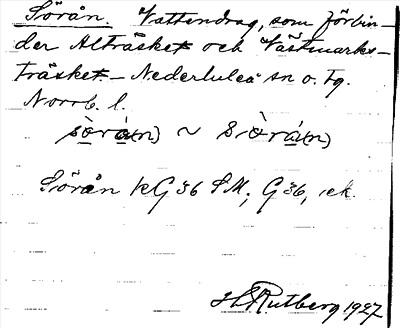 Sörån. Vattendrag, som förbin-
der Alträsket och Västmarks-
träsket. – Nederluleå sn o. tg.
Norrb. l.
sòrá(n) ~ Sòrá(n)
Sörån kG 36 SM; G 36, ek.
H Rutberg 1927